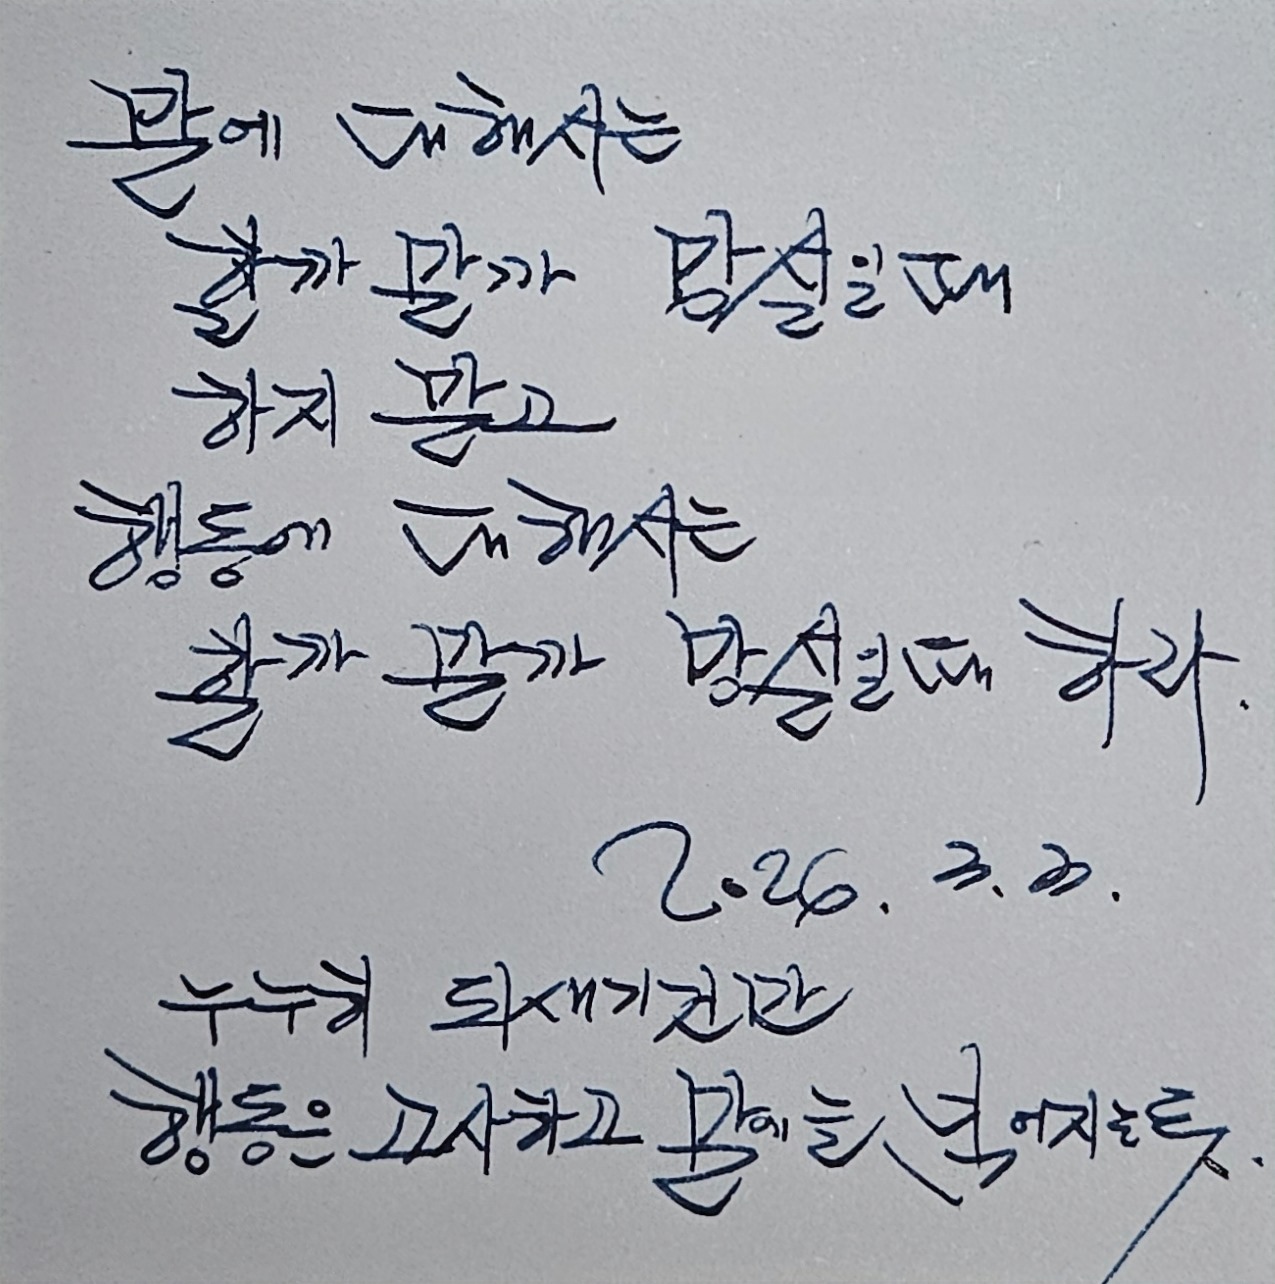 말에 대해서는
할까 말까 망설일때
하지 말고
행동에 대해서는
할까 말까 망설일때 하라.
2026. 3. 3.
누누히 되새기건만
행동은 고사하고 말에 늘 넘어지는듯.